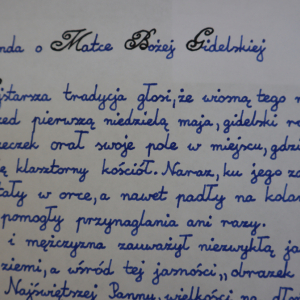 nda o Matce Bożej Gidelskiej
jstarsza tradycja głosi, że wiosną tego r
zed pierwszą niedzielą maja, gidelski ro
eczek orał swoje pole w miejscu, gdzi
ę klasztorny kościół. Naraz, ku jego za
tały w orce, a nawet padły na kola
pomogły przynaglania ani razy.
i mężczyzna zauważył niezwykłą ja
ziemi, a wśród tej jasności „obrazek
Najświętszej Panny, wielkości na dł